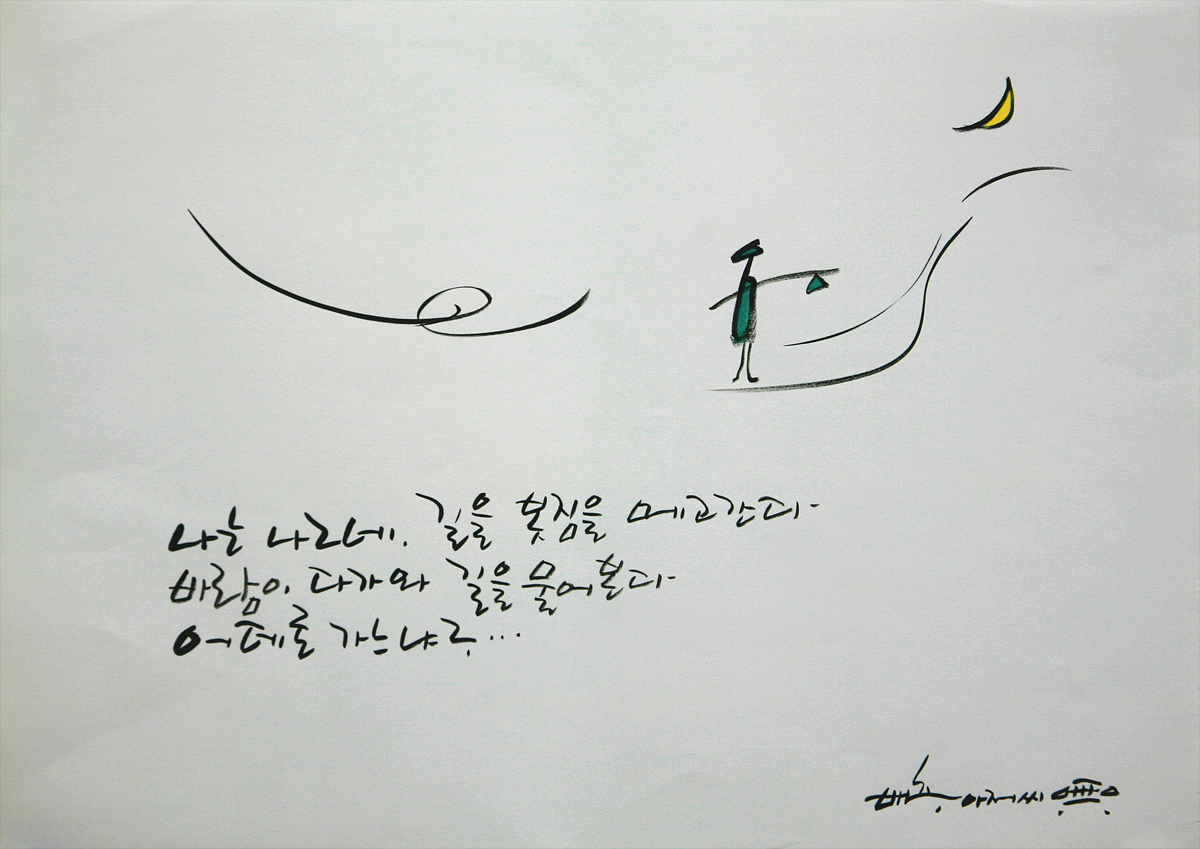 나는 나그네. 길을 봇짐을 메고간다-
바람이 다가와 길을 물어본다-
어데로 가느냐구...
배추 아저씨